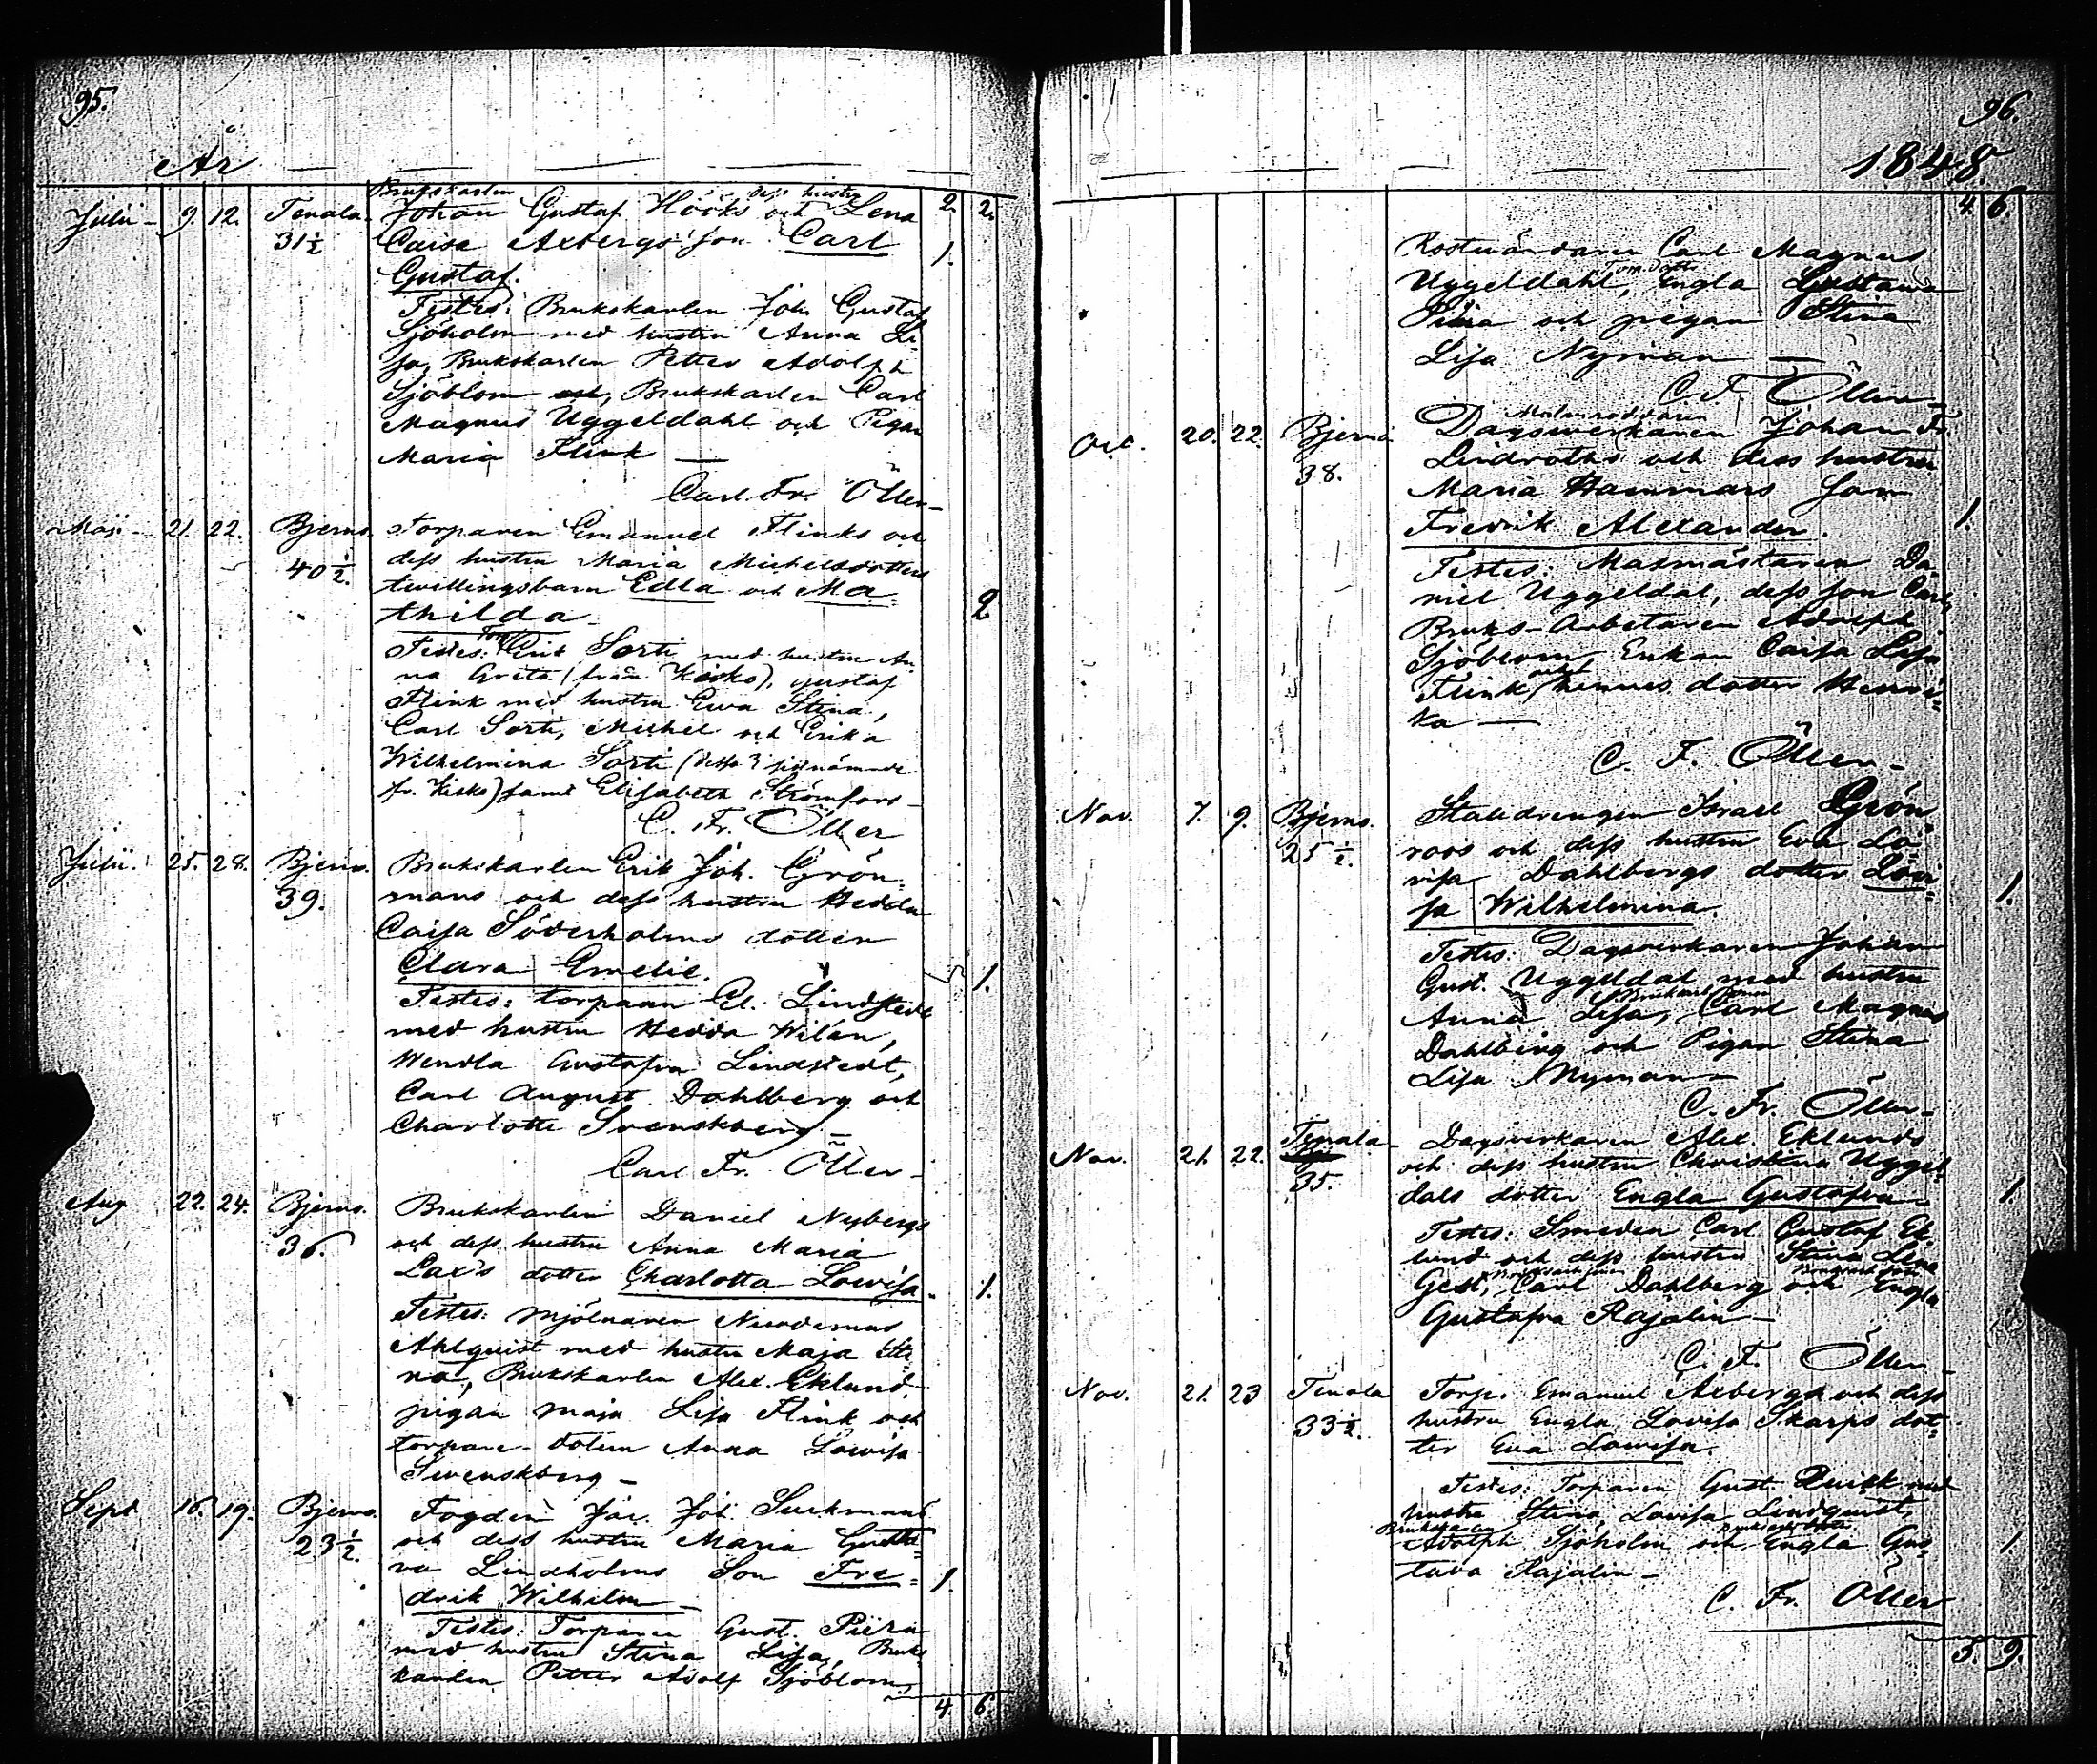 95.
År
Julii - 9. 12. Tenala. 31½
Brukskarlen dess hustru
Johan Gustaf Hööks och Lena 2. 2.
Caisa Axbergs son Carl 1.
Gustaf.
Testes: Brukskarlen Joh. Gustaf
Sjöholm med hustru Anna Li-
sa, Brukskarlen Petter Adolph
Sjöblom, Brukskarlen Carl
Magnus Uggeldahl och Pigan
Maria Flink —
Carl Fr. Öller
Maji - 21. 22. Bjerno. 40½.
Torparen Emanuel Flinks och
dess hustru Maria Michelsdotters
twillingsbarn Edla och Ma= 2
thilda.
Testes: Erik Sorti med hustru An-
na Greta (från Kisko), Gustaf
Flink med hustru Ewa Stina,
Carl Sorti, Michel och Erika
Wilhelmina Sorti (desse 3 sistnämnde
fr. Kisko) samt Elisabeth Strömfors
C. Fr. Öller
Julii. 25. 28. Bjerno. 39.
Brukskarlen Erik Joh. Grön-
mans och dess hustru Hedda
Caisa Söderholms dotter
Clara Emelie. 1.
Testes: torparen El. Lindstedt
med hustru Hedda Wilén,
Wendla Gustafva Lindstedt,
Carl August Dahlberg och
Charlotte Svenskberg —
Carl Fr. Öller
Aug. 22. 24. Bjerno. 36.
Brukskarlen Daniel Nybergs
och dess hustru Anna Maria
Lax's dotter Charlotta Lowisa. 1.
Testes: Mjölnaren Nicodemus
Ahlquist med hustru Maja Sti-
na, Brukskarlen Alex. Eklund,
pigan Maja Lisa Flink och
torpare-dottern Anna Lowisa
Swenskberg —
Sept. 16. 19. Bjerno. 23½.
Fogden Joh. Suckmans
och dess hustru Maria Gusta=
va Lindholms Son Fre= 1.
drik Wilhelm —
Testes: Torparen Gust. Piira
med hustru Stina Lisa, Bruks
karlen Petter Adolf Sjöblom,
4. 6.
96.
1848.
4. 6.
Rostwändaren Carl Magnus
Uggeldahl, Engla Gustawa
och pigan Stina
Lisa Nyman —
C. F. Öller
Oct. 20. 22. Bjerno 38.
Dagswerkaren Johan Fr.
Lindroths och dess hustru
Maria Hammars son
Fredrik Alexander. 1.
Testes: Masmästaren Da-
niel Uggeldal, dess son Carl,
Bruks-Arbetaren Adolph
Sjöblom, Enkan Caisa Lisa
Flink och hennes dotter Henri=
ka —
C. F. Öller
Nov. 7. 9. Bjerno. 25½.
Stalldrengen Israel Grön-
roos och dess hustru Eva Lo-
visa Dahlbergs dotter Lovi= 1.
sa Wilhelmina.
Testes: Dagsverkaren Johan
Gust. Uggeldal med hustru
Anna Lisa, Carl Magnus
Dahlberg och Pigan Stina
Lisa Nyman —
C. Fr. Öller
Nov. 21. 22. Tenala 35.
Dagsverkaren Alex. Eklunds
och dess hustru Christina Uggel-
dals dotter Engla Gustafva 1.
Testes: Smeden Carl Gustaf Ek-
lund och dess hustru Stina Lena
Carl Dahlberg och Engla
Gustafva Rajalin —
C. F. Öller
Nov. 21. 23 Tenala 33½.
Torp. Emanuel Axbergs och dess
hustru Engla Lovisa Skarps dot=
ter Eva Lowisa.
Testes: Torparen Gust. Quick med
hustru Stina Lovisa Lindquist,
Adolph Sjöholm och Engla Gus= 1.
tava Rajalin —
C. Fr. Öller
5. 9.